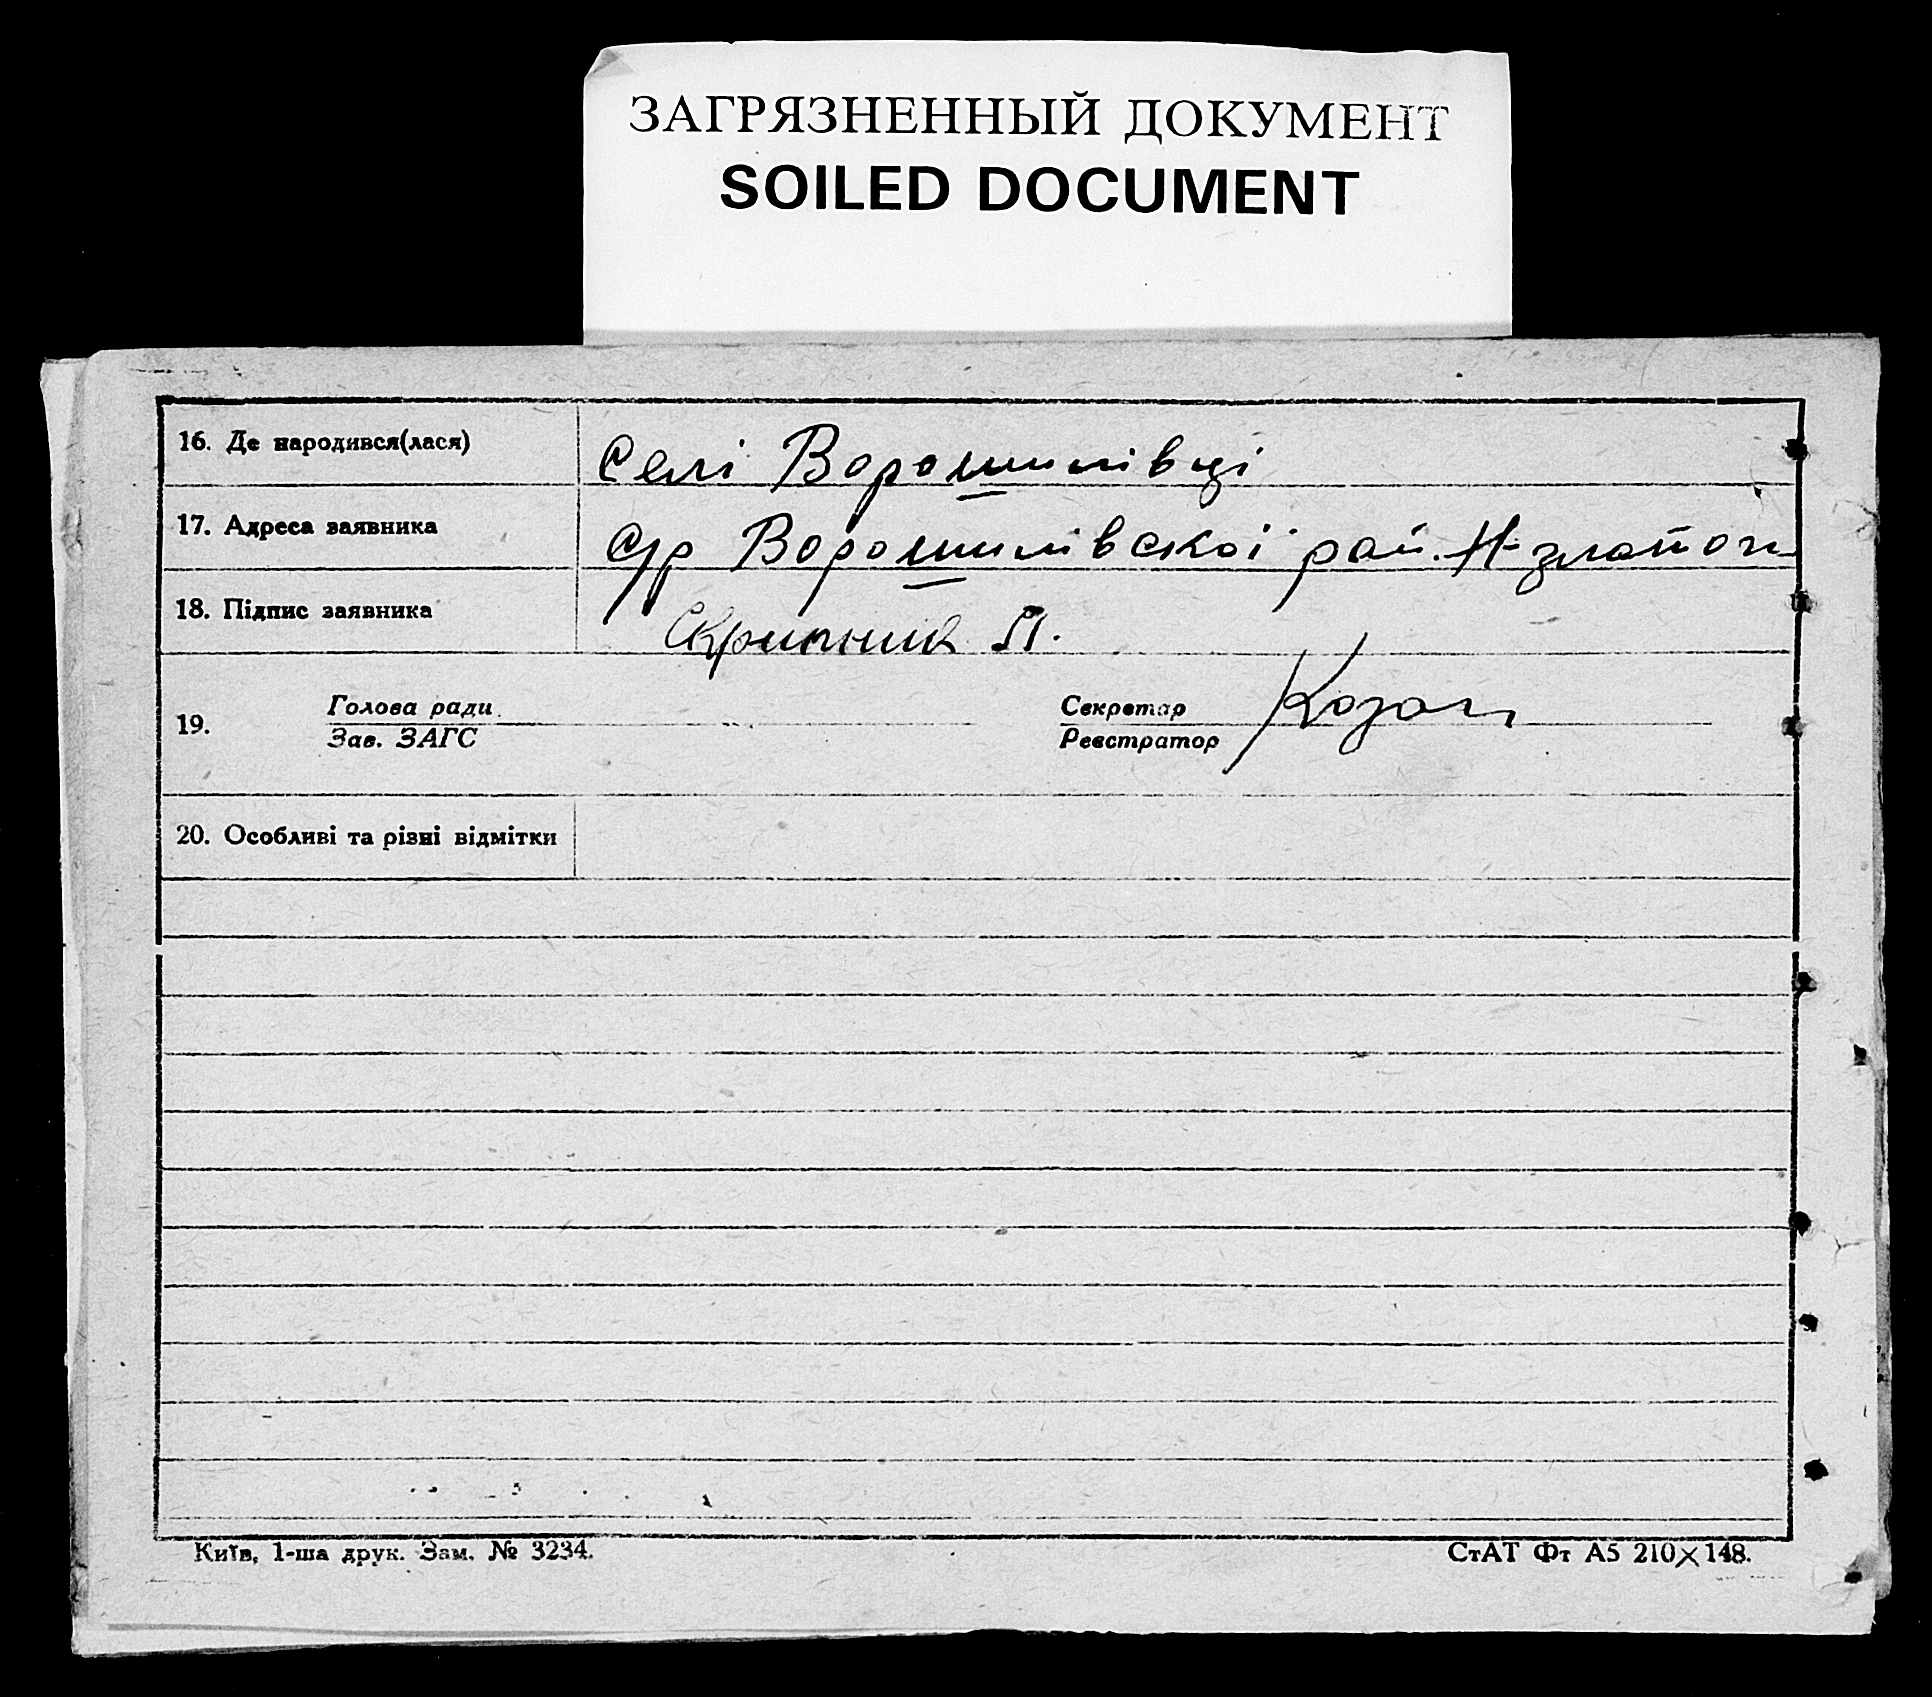 ЗАГРЯЗНЕННЫЙ ДОКУМЕНТ
SOILED DOCUMENT
16. Де народився(лася) Селі Ворошилівці
17. Адреса заявника с/р Ворошилівскої рай. Н-златоп
18. Підпис заявника Скрипник П.
19. Голова ради Секретар Козак
Зав. ЗАГС Реєстратор
20. Особливі та різні відмітки
Київ, 1-ша друк. Зам. № 3234. СтАТ Фт А5 210×148.